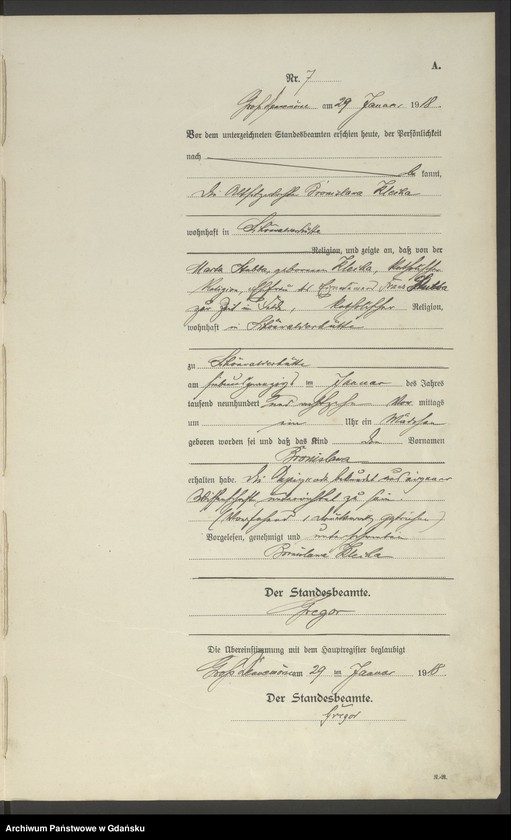 A.
Nr. 7
am 29 Januar 1918.
Vor dem unterzeichneten Standesbeamten erschien heute, der Persönlichkeit
nach
be kannt,
die Bronislawa Kleska
wohnhaft in Schönwalderhütte
Religion, und zeigte an, daß von der
Marta geborenen Kleska, katholischer
Religion, Ehefrau des Franz
zur Zeit im Felde, katholischer Religion,
wohnhaft in Schönwalderhütte
zu Schönwalderhütte
am siebenundzwanzigsten im Januar des Jahres
tausend neunhundert und achtzehn Vor mittags
um ein Uhr ein Mädchen
geboren worden sei und daß das Kind den Vornamen
Bronislawa
erhalten habe. Die aus eigener
Wissenschaft unterrichtet zu sein.
Vorgelesen, genehmigt und unterschrieben
Bronislawa Kleska
Der Standesbeamte.
Gregor
Die Übereinstimmung mit dem Hauptregister beglaubigt
Groß am 29 im Januar 1918
Der Standesbeamte.
Gregor
Archiwum Państwowe w Gdańsku